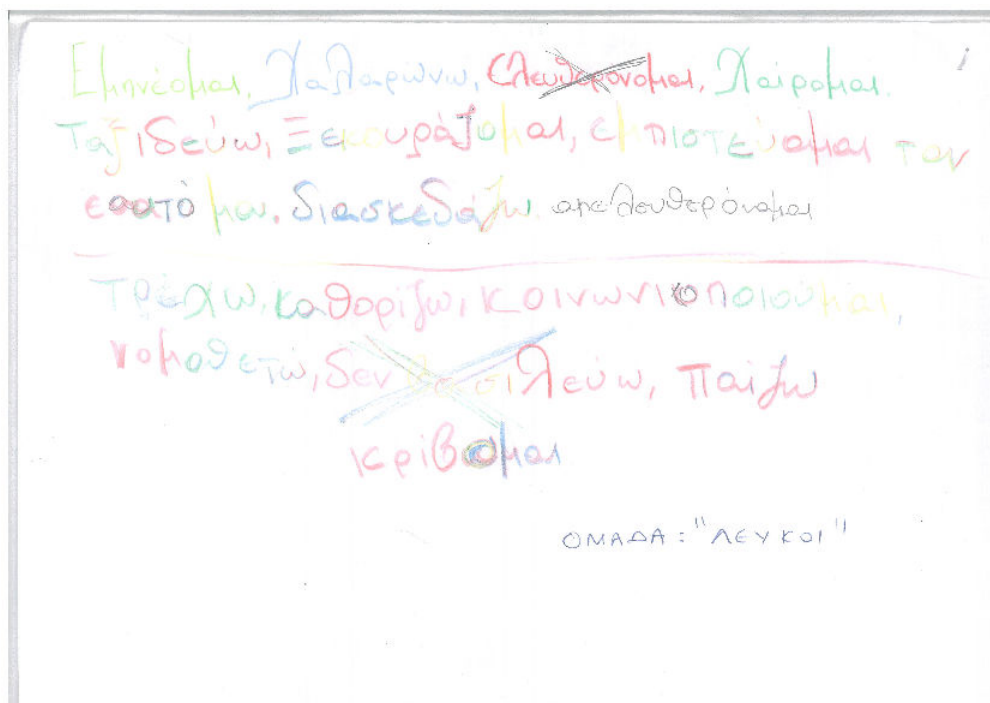 Εμπνέομαι, Χαλαρώνω, Ελευθερόνομαι, Χαίρομαι.
Ταξιδεύω, Ξεκουράζομαι, εμπιστεύομαι τον
εαατό μου. διασκεδάζω. απελευθερόνομαι
Τρέχω, καθορίζω, κοινωνικοποιούμαι,
νομοθετώ, δεν βασιλεύω, παίζω
κρίβομαι
ΟΜΑΔΑ: "ΛΕΥΚΟΙ"